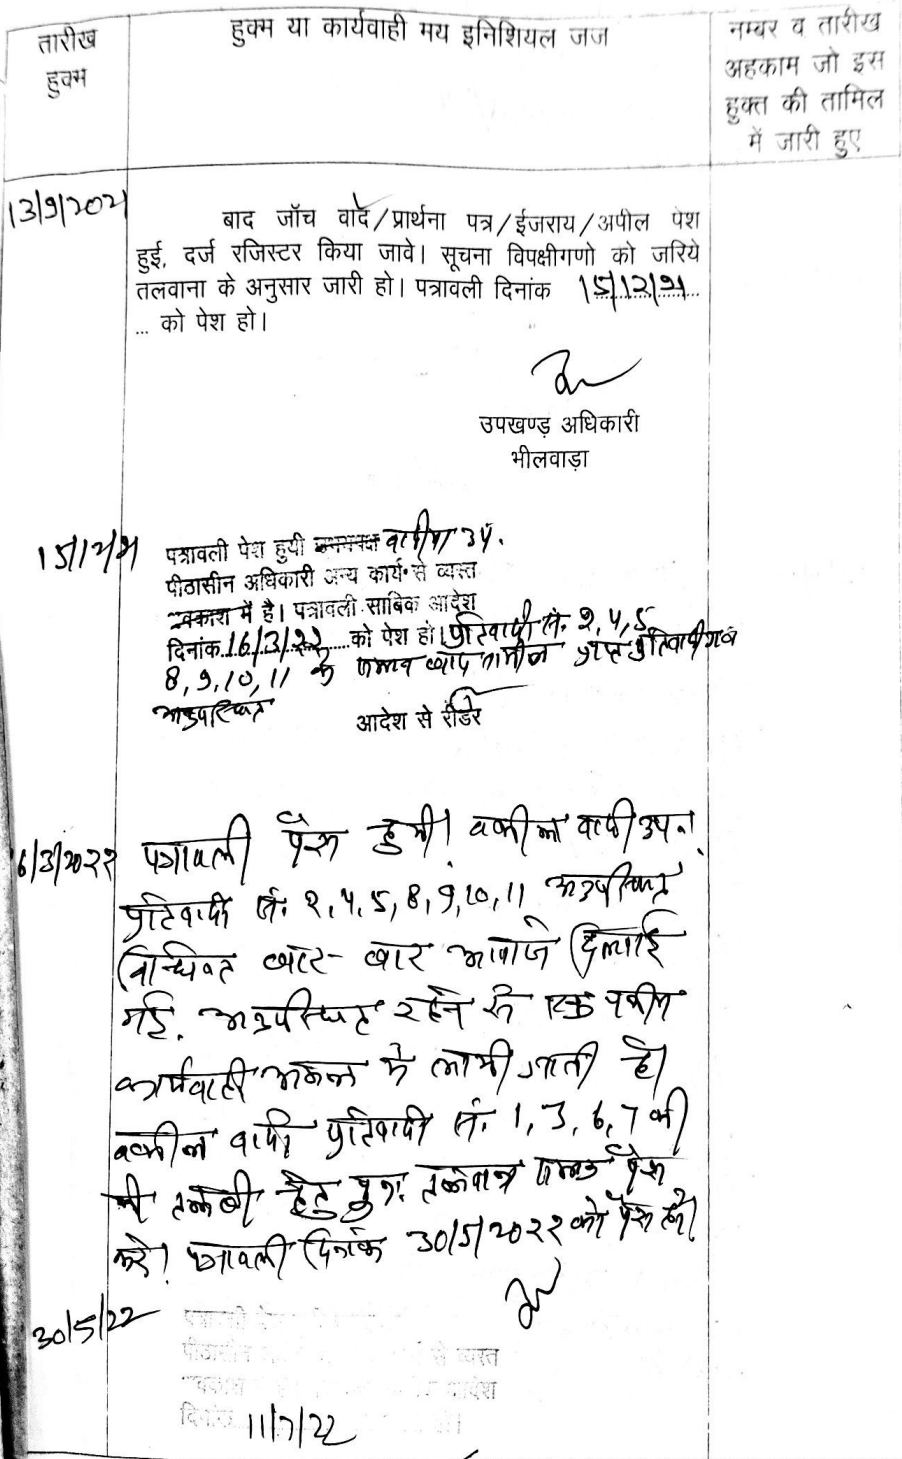 तारीख
हुक्म
हुक्म या कार्यवाही मय इनिशियल जज
नम्बर व तारीख
अहकाम जो इस
हुक्त की तामिल
में जारी हुए
13/9/2021
बाद जॉच वादॅ/प्रार्थना पत्र/ईजराय/अपील पेश
हुई, दर्ज रजिस्टर किया जावे। सूचना विपक्षीगणो को जरिये
तलवाना के अनुसार जारी हो। पत्रावली दिनांक 15/12/21
... को पेश हो।
उपखण्ड़ अधिकारी
भीलवाड़ा
15/12/21
पत्रावली पेश हुयी उभयपक्ष
पीठासीन अधिकारी अन्य कार्य से व्यस्त
अवकाश में है। पत्रावली साबिक आदेश
दिनांक 16/3/22 को पेश हो। प्रतिवादी सं. 2, 4, 5
8, 9, 10, 11 के प्राप्त प्रतिवादीगण
अनुपस्थित
आदेश से रीडर
16/3/2022
पत्रावली पेश हुयी। वकील वादी उप.।
प्रतिवादी सं. 2, 4, 5, 8, 9, 10, 11 अनुपस्थित
बार-बार आवाजे दिलाई
गई. अनुपस्थित रहने से एक
कार्यवाही अमल मे लायी जाती है।
वकील वादी प्रतिवादी सं. 1, 3, 6, 7 की
तलबी हेतु पुनः तलवाना पेश
करे। पत्रावली दिनांक 30/5/2022 को पेश हो।
30/5/22
पत्रावली पे
पीठासीन से व्यस्त
अवकाश आदेश
दिनांक 11/7/22